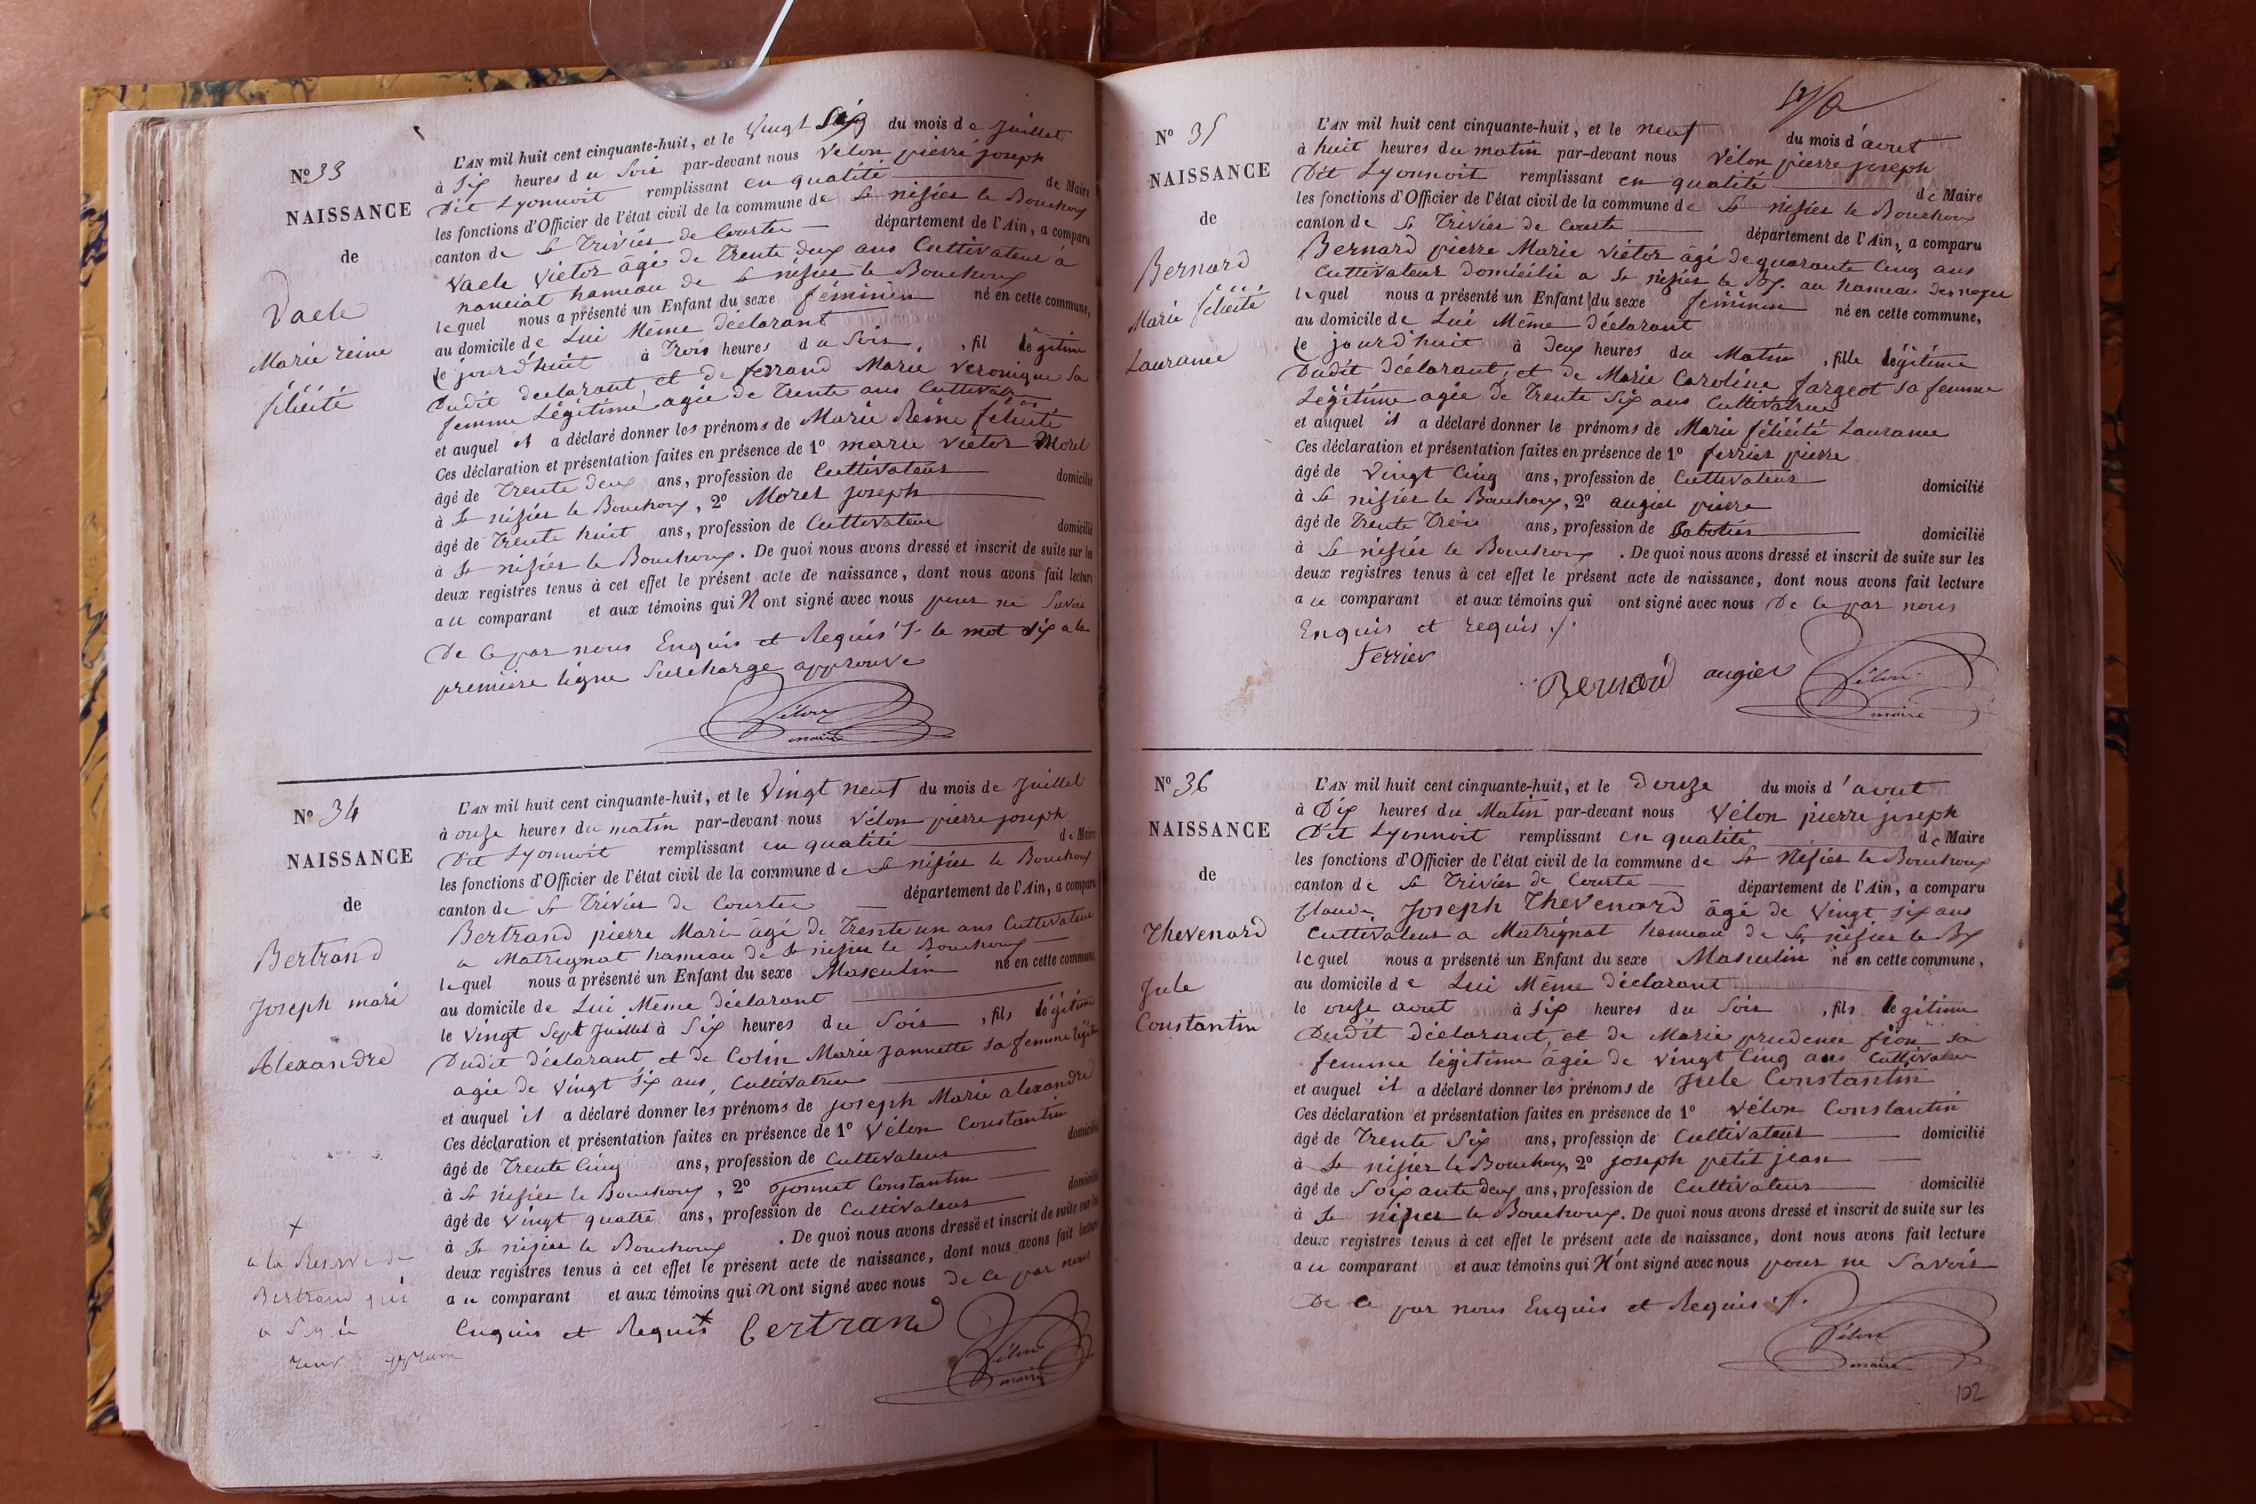 N° 33
NAISSANCE
de
Vacle
Marie reine
félicité
L'AN mil huit cent cinquante-huit, et le Vingt Six du mois de Juillet
à Six heures du Soir par-devant nous Vélon pierre joseph
Dit Lyonnoit remplissant en qualité de Maire
les fonctions d'Officier de l'état civil de la commune de St nisier le Bouchoux
canton de St Trivier de Courte département de l'Ain, a comparu
Vacle Victor âgé de Trente deux ans Cultivateur à
hameau de St nisier le Bouchoux
lequel nous a présenté un Enfant du sexe féminin né en cette commune,
au domicile de Lui Même déclarant
le jourd'huit à Trois heures du Soir, fil légitime
Dudit declarant et de ferrand Marie Veronique Sa
femme Légitime agée de Trente ans Cultivatrice
et auquel il a déclaré donner les prénoms de Marie Reine félicité
Ces déclaration et présentation faites en présence de 1° marie Victor Morel
âgé de Trente deux ans, profession de Cultivateur domicilié
à St nisier le Bouchoux, 2° Morel joseph
âgé de Trente huit ans, profession de Cultivateur domicilié
à St nisier le Bouchoux. De quoi nous avons dressé et inscrit de suite sur les
deux registres tenus à cet effet le présent acte de naissance, dont nous avons fait lecture
au comparant et aux témoins qui N ont signé avec nous pour ne Savoir
De ce par nous Enquis et Requis ./. le mot Six a la
premiere ligne Surcharge approuvé
Vélon
maire
N° 34
NAISSANCE
de
Bertrand
Joseph marie
Alexandre
L'AN mil huit cent cinquante-huit, et le Vingt neuf du mois de Juillet
à onze heures du matin par-devant nous Vélon pierre joseph
Dit Lyonnoit remplissant en qualité de Maire
les fonctions d'Officier de l'état civil de la commune de St nisier le Bouchoux
canton de St Trivier de Courte département de l'Ain, a comparu
Bertrand pierre Marie âgé de Trente un ans Cultivateur
a Matrignat hameau de St nisier le Bouchoux
lequel nous a présenté un Enfant du sexe Masculin né en cette commune,
au domicile de Lui Même déclarant
le Vingt Sept Juillet à Six heures du Soir, fils légitime
Dudit déclarant et de Colin Marie Jannette sa femme légitime
agée de Vingt Six ans, Cultivatrice
et auquel il a déclaré donner les prénoms de joseph Marie alexandre
Ces déclaration et présentation faites en présence de 1° Vélon Constantin
âgé de Trente Cinq ans, profession de Cultivateur domicilié
à St nisier le Bouchoux, 2° Constantin
âgé de Vingt quatre ans, profession de Cultivateur domicilié
à St nisier le Bouchoux. De quoi nous avons dressé et inscrit de suite sur les
deux registres tenus à cet effet le présent acte de naissance, dont nous avons fait lecture
au comparant et aux témoins qui N ont signé avec nous de ce par nous
Enquis et Requis + Bertrand
Vélon
maire
+
a la Reserve de
Bertrand qui
a Signé
N° 35
NAISSANCE
de
Bernard
Marie félicité
Laurance
L'AN mil huit cent cinquante-huit, et le neuf du mois d'avout
à huit heures du matin par-devant nous Vélon pierre joseph
Dit Lyonnoit remplissant en qualité de Maire
les fonctions d'Officier de l'état civil de la commune de St nisier le Bouchoux
canton de St Trivier de Courte département de l'Ain, a comparu
Bernard pierre Marie Victor âgé de quarante Cinq ans
Cultivateur Domicilié a St nisier le Bx. au hameau
lequel nous a présenté un Enfant du sexe féminin né en cette commune,
au domicile de Lui Même déclarant
le jourd'huit à Deux heures du Matin, fille légitime
Dudit déclarant, et de Marie Caroline fargeot sa femme
Légitime agée De Trente Six ans Cultivatrice
et auquel il a déclaré donner le prénoms de Marie félicité Laurance
Ces déclaration et présentation faites en présence de 1° ferrier pierre
âgé de Vingt Cinq ans, profession de Cultivateur domicilié
à St nisier le Bouchoux, 2° augier pierre
âgé de Trente Trois ans, profession de Sabotier domicilié
à St nisier le Bouchoux. De quoi nous avons dressé et inscrit de suite sur les
deux registres tenus à cet effet le présent acte de naissance, dont nous avons fait lecture
au comparant et aux témoins qui ont signé avec nous De ce par nous
Enquis et requis ./.
ferrier
Bernard augier Vélon
maire
N° 36
NAISSANCE
de
Thevenard
Jule
Constantin
L'AN mil huit cent cinquante-huit, et le Douze du mois d'avout
à Dix heures du Matin par-devant nous Vélon pierre joseph
Dit Lyonnoit remplissant en qualité de Maire
les fonctions d'Officier de l'état civil de la commune de St Nisier le Bouchoux
canton de St Trivier de Courte département de l'Ain, a comparu
Claude Joseph Thevenard âgé de Vingt Six ans
Cultivateur a Matrignat hameau de St nisier le Bx
lequel nous a présenté un Enfant du sexe Masculin né en cette commune,
au domicile de Lui Même déclarant
le onze avout à Six heures du Soir, fils légitime
Dudit déclarant, et de Marie prudence fion sa
femme légitime âgée de Vingt Cinq ans Cultivatrice
et auquel il a déclaré donner les prénoms de Jule Constantin
Ces déclaration et présentation faites en présence de 1° Vélon Constantin
âgé de Trente Six ans, profession de Cultivateur domicilié
à St nisier le Bouchoux, 2° joseph petit jean
âgé de Soixante deux ans, profession de Cultivateur domicilié
à St nisier le Bouchoux. De quoi nous avons dressé et inscrit de suite sur les
deux registres tenus à cet effet le présent acte de naissance, dont nous avons fait lecture
au comparant et aux témoins qui N'ont signé avec nous pour ne Savoir
De ce par nous Enquis et Requis ./.
Vélon
maire
102